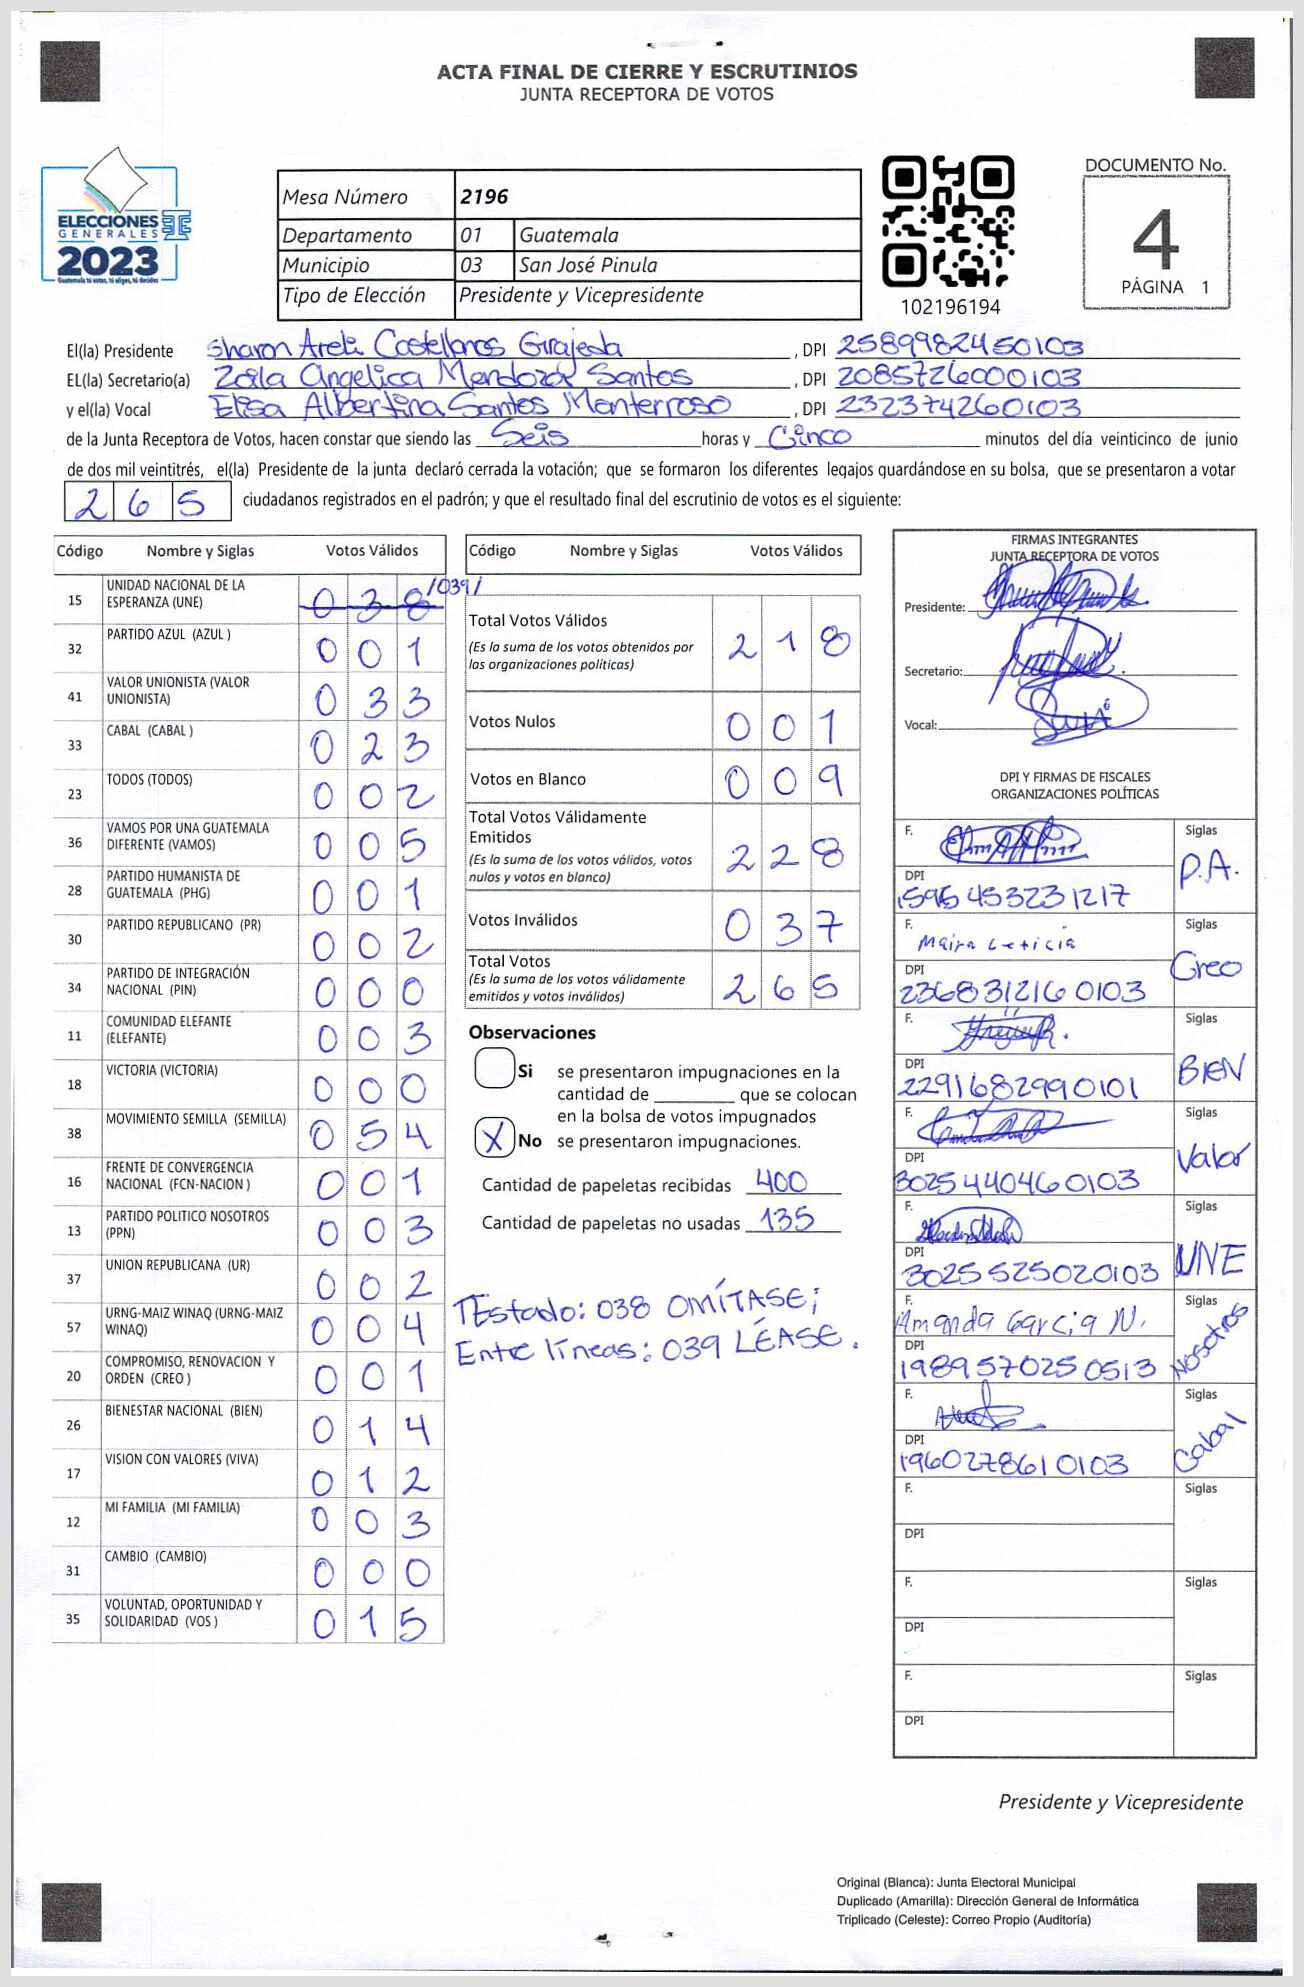 ACTA FINAL DE CIERRE Y ESCRUTINIOS
JUNTA RECEPTORA DE VOTOS
ELECCIONES
GENERALES
2023
Mesa Número 2196
Departamento 01 Guatemala
Municipio 03 San José Pinula
Tipo de Elección Presidente y Vicepresidente
102196194
DOCUMENTO No.
4
PÁGINA 1
El(la) Presidente Sharon Areli Castellanos Grajeda, DPI 2589982450103
EL(la) Secretario(a) Zoila Angelica Mendoza Santos, DPI 2085726000103
y el(la) Vocal Elisa Albertina Santos Monterroso, DPI 2323742260103
de la Junta Receptora de Votos, hacen constar que siendo las Seis horas y Cinco minutos del día veinticinco de junio
de dos mil veintitrés, el(la) Presidente de la junta declaró cerrada la votación; que se formaron los diferentes legajos guardándose en su bolsa, que se presentaron a votar
265 ciudadanos registrados en el padrón; y que el resultado final del escrutinio de votos es el siguiente:
Código Nombre y Siglas Votos Válidos
15 UNIDAD NACIONAL DE LA ESPERANZA (UNE) 038 /039/
32 PARTIDO AZUL (AZUL ) 001
41 VALOR UNIONISTA (VALOR UNIONISTA) 033
33 CABAL (CABAL ) 023
23 TODOS (TODOS) 002
36 VAMOS POR UNA GUATEMALA DIFERENTE (VAMOS) 005
28 PARTIDO HUMANISTA DE GUATEMALA (PHG) 001
30 PARTIDO REPUBLICANO (PR) 002
34 PARTIDO DE INTEGRACIÓN NACIONAL (PIN) 000
11 COMUNIDAD ELEFANTE (ELEFANTE) 003
18 VICTORIA (VICTORIA) 000
38 MOVIMIENTO SEMILLA (SEMILLA) 054
16 FRENTE DE CONVERGENCIA NACIONAL (FCN-NACION ) 001
13 PARTIDO POLITICO NOSOTROS (PPN) 003
37 UNION REPUBLICANA (UR) 002
57 URNG-MAIZ WINAQ (URNG-MAIZ WINAQ) 004
20 COMPROMISO, RENOVACION Y ORDEN (CREO ) 001
26 BIENESTAR NACIONAL (BIEN) 014
17 VISION CON VALORES (VIVA) 012
12 MI FAMILIA (MI FAMILIA) 003
31 CAMBIO (CAMBIO) 000
35 VOLUNTAD, OPORTUNIDAD Y SOLIDARIDAD (VOS ) 015
Código Nombre y Siglas Votos Válidos
Total Votos Válidos 218
(Es la suma de los votos obtenidos por
las organizaciones políticas)
Votos Nulos 001
Votos en Blanco 009
Total Votos Válidamente
Emitidos 228
(Es la suma de los votos válidos, votos
nulos y votos en blanco)
Votos Inválidos 037
Total Votos 265
(Es la suma de los votos válidamente
emitidos y votos inválidos)
Observaciones
Si se presentaron impugnaciones en la
cantidad de ________ que se colocan
en la bolsa de votos impugnados
X No se presentaron impugnaciones.
Cantidad de papeletas recibidas 400
Cantidad de papeletas no usadas 135
TEstado: 038 OMÍTASE;
Entre líneas: 039 LÉASE.
FIRMAS INTEGRANTES
JUNTA RECEPTORA DE VOTOS
Presidente:
Secretario:
Vocal:
DPI Y FIRMAS DE FISCALES
ORGANIZACIONES POLÍTICAS
F. Siglas P.A.
DPI 1596453231217
F. Maira Leticia Siglas Creo
DPI 2368312160103
F. Siglas BIEN
DPI 2291682990101
F. Siglas Valor
DPI 3025440460103
F. Siglas UNE
DPI 3025525020103
F. Amanda Garcia N. Siglas Nosotros
DPI 1989570250513
F. Siglas Cabal
DPI 1960278610103
F. Siglas
DPI
F. Siglas
DPI
F. Siglas
DPI
Presidente y Vicepresidente
Original (Blanca): Junta Electoral Municipal
Duplicado (Amarilla): Dirección General de Informática
Triplicado (Celeste): Correo Propio (Auditoría)